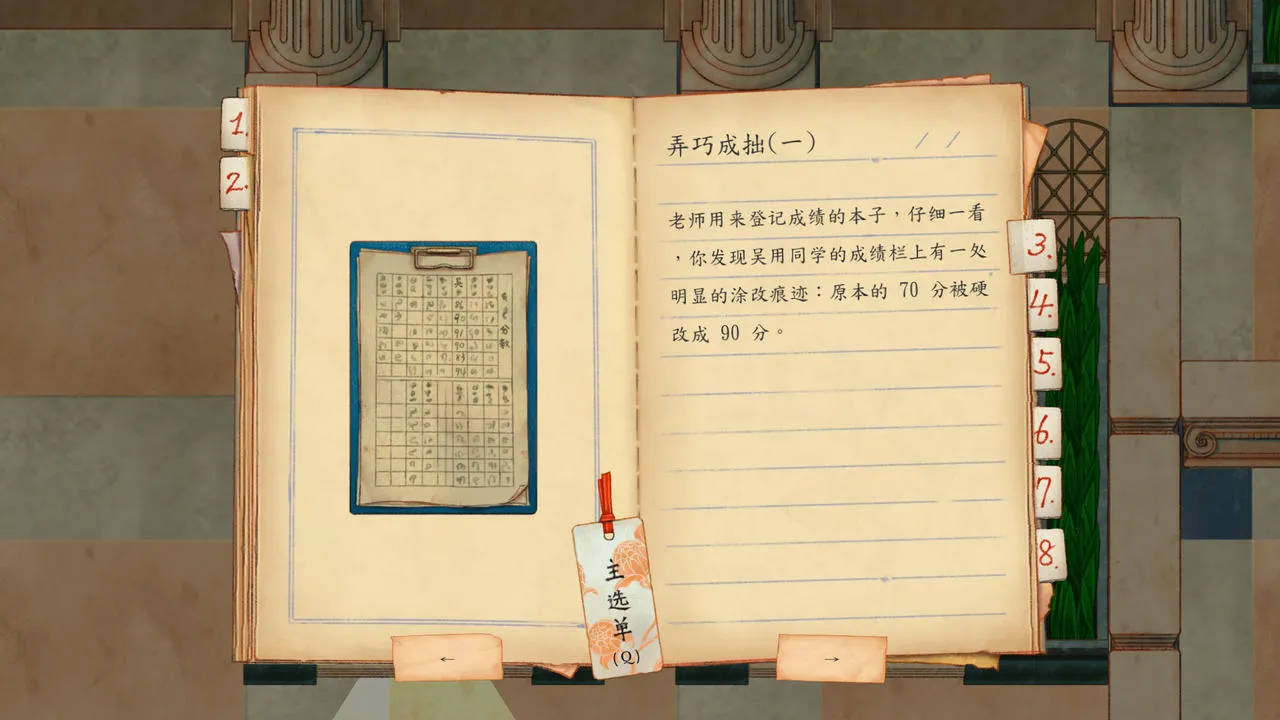 1.
2.
弄巧成拙(一)
/ /
老师用来登记成绩的本子，仔细一看
，你发现吴用同学的成绩栏上有一处
明显的涂改痕迹：原本的 70 分被硬
改成 90 分。
3.
4.
5.
6.
7.
8.
分数
吴
90
91
90
83
主选单
(Q)
←
→